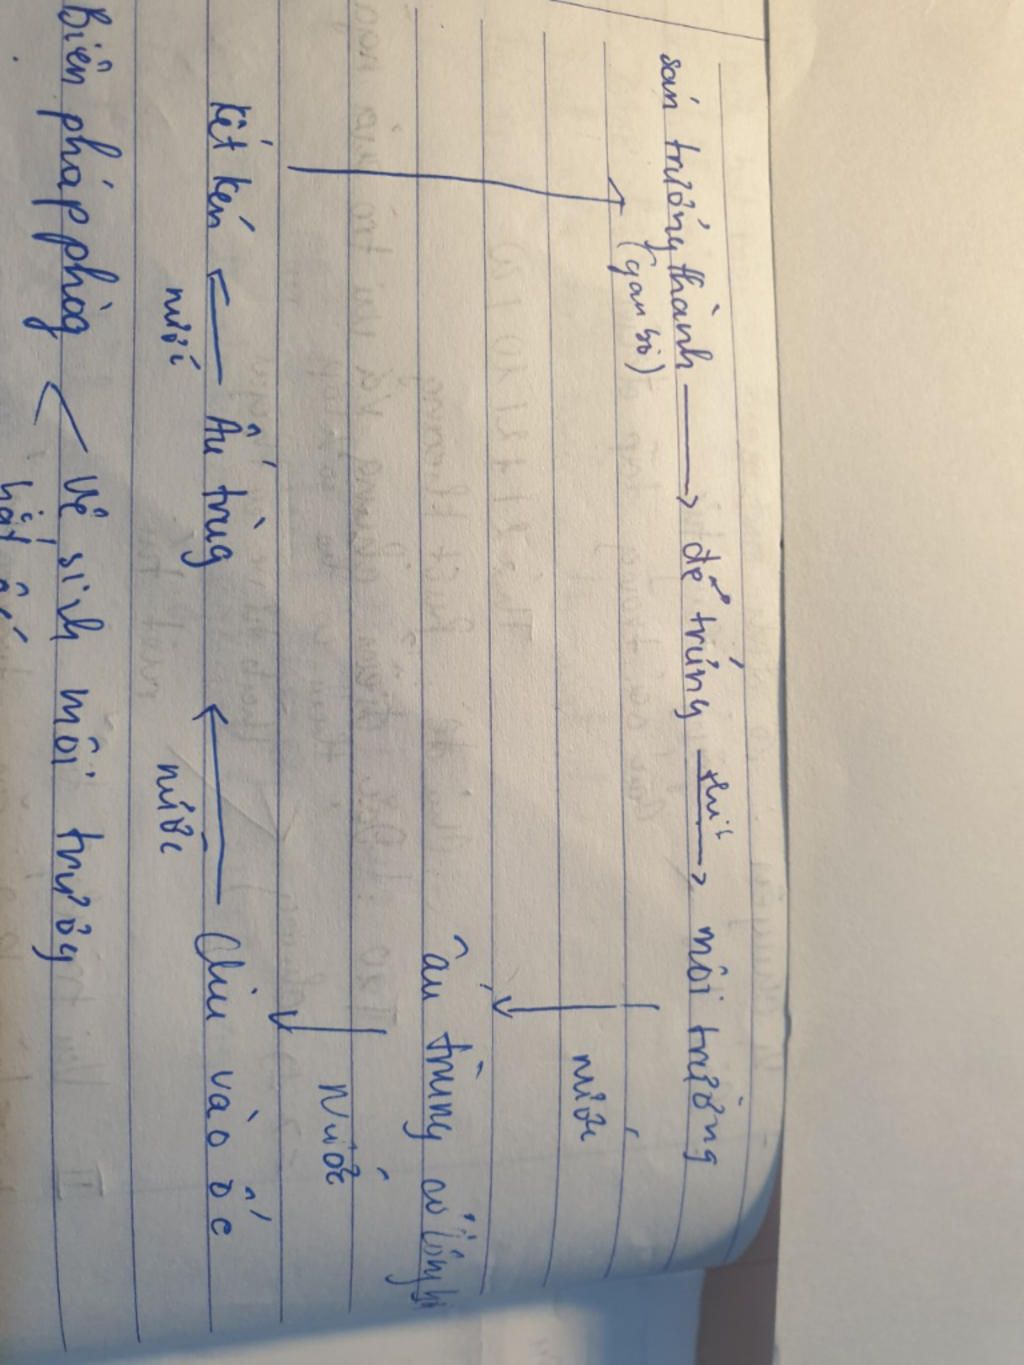 sán trưởng thành → đẻ trứng thứ → môi trường
(gan bò)
nước
ấu trùng có lông bơi
Nước
Kết kén ← Ấu trùg ← Chui vào ốc
nước nước
Biên pháp phòg < Vệ sinh môi trường